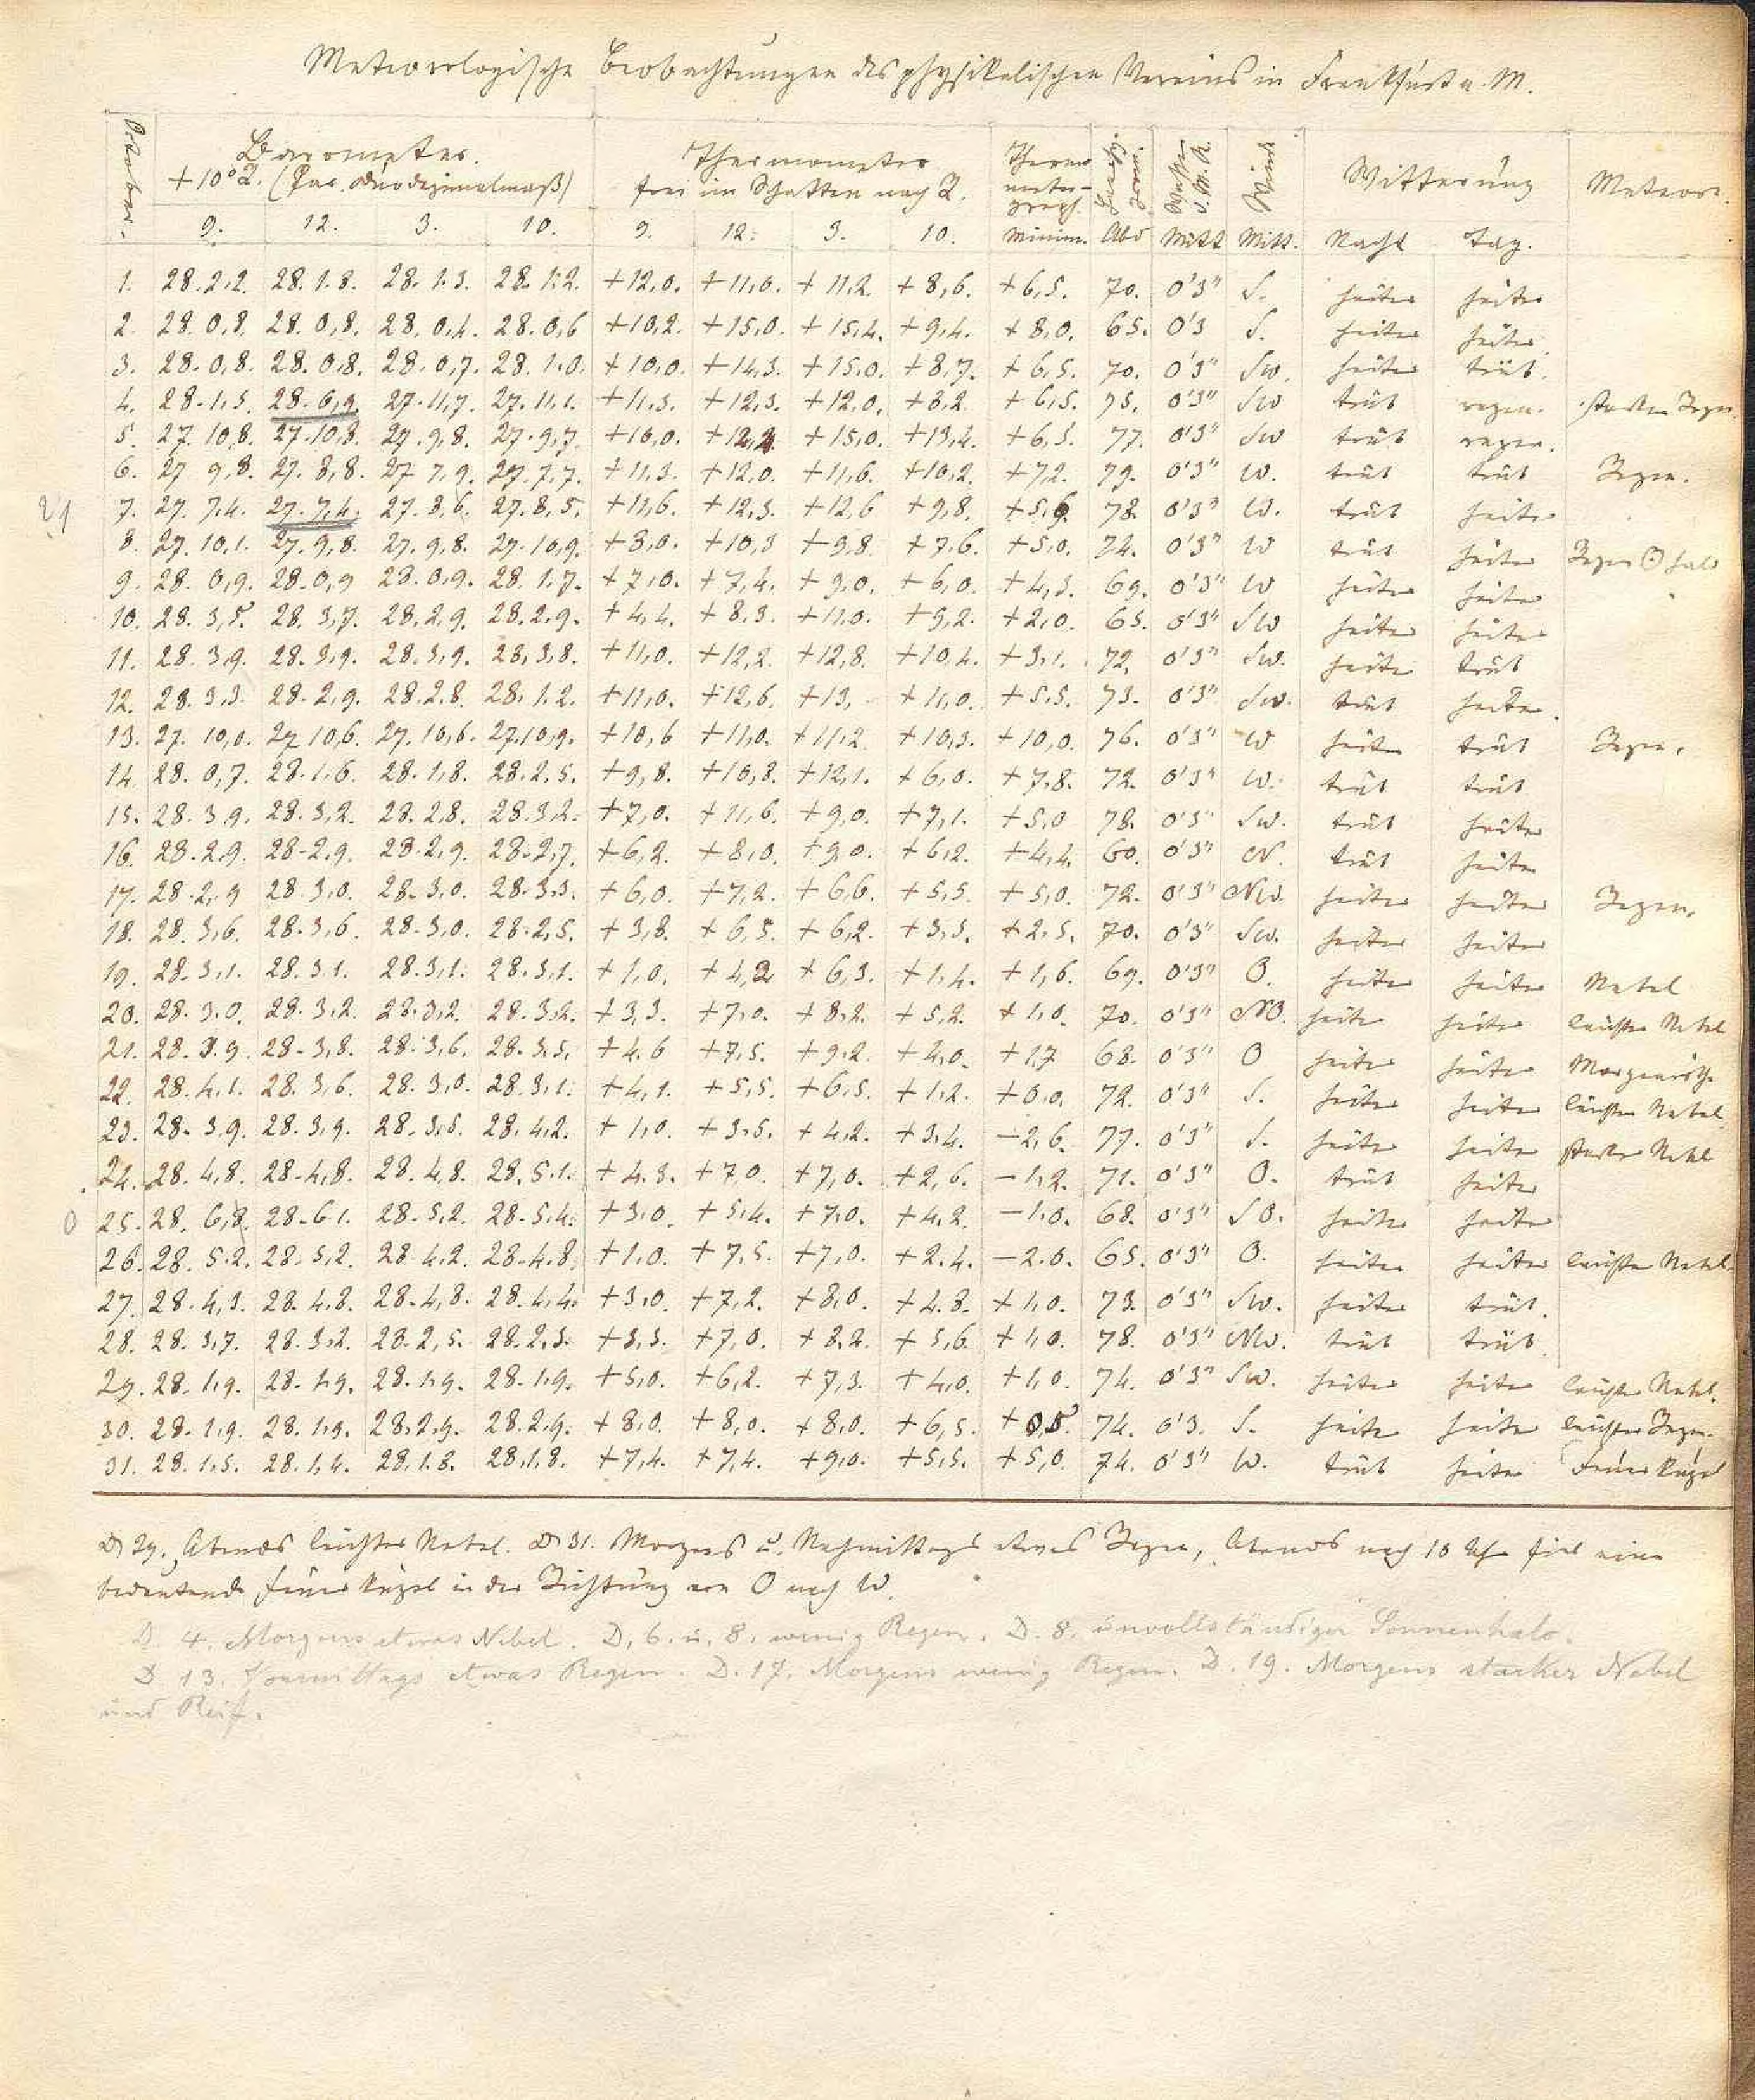 Meteorologische Beobachtungen des physikalischen Vereins in Frankfurt a. M.
October. Barometer. Thermometer Thermo Wind Witterung Meteore.
+10° R. (Par. Duodezimalmaß) frei im Schatten nach R. meter- graph.
9. 12. 3. 10. 9. 12. 3. 10. Minim. Abd Mitt Mitt. Nacht Tag.
1. 28. 2,2. 28. 1. 8. 28. 1. 3. 28. 1. 2. +12,0. +11,0. +11,2. +8,6. +6,5. 70. 0'3" S. heiter heiter
2. 28. 0,8. 28. 0,8. 28. 0,4. 28. 0,6 +10,2. +15,0. +15,4. +9,4. +8,0. 65. 0'3 S. heiter heiter.
3. 28. 0,8. 28. 0,8. 28. 0,7. 28. 1. 0. +10,0. +14,3. +15,0. +8,7. +6,5. 70. 0'3" SW. heiter trüb.
4. 28. 1,3. 28. 27. 11,7. 27. 11,1. +11,3. +12,3. +12,0. +8,2. +6,5. 75. 0'3" SW trüb regen. starker Regen.
5. 27. 10,8. 27. 10,3. 27. 9,8. 27. 9,7. +10,0. +15,0. +13,4. +6,5. 77. 0'3" SW trüb regen.
6. 27 9,8. 27. 8,8. 27 7,9. 27. 7,7. +11,3. +12,0. +11,6. +10,2. +7,2. 79. 0'3" W. trüb trüb Regen.
7. 27. 7,4. 27. 7,4. 27. 8,6. 27. 8,5. +11,6. +12,3. +12,6 +9,8. 78. 0'3" W. trüb heiter
8. 27. 10,1. 27. 9,8. 27. 9,8. 27. 10,9. +8,0. +10,3 +9,8. +7,6. +5,0. 74. 0'3" W trüb heiter Regen ☉ halo
9. 28. 0,9. 28. 0,9 28. 0,9. 28. 1. 7. +7,0. +7,4. +9,0. +6,0. +4,3. 69. 0'3" W heiter heiter
10. 28. 3,5. 28. 3,7. 28. 2,9. 28. 2,9. +4,4. +8. 3. +11,0. +9,2. +2,0. 65. 0'3" SW heiter heiter
11. 28. 3,9. 28. 3,9. 28. 3,9. 28. 3,8. +11,0. +12,2. +12,8. +10,4. +3,1. 72. 0'3" SW. heiter trüb
12. 28. 3,3. 28. 2,9. 28. 2,8. 28. 1. 2. +11,0. +12,6. +13, - +11,0. +5,5. 73. 0'3" SW. trüb heiter.
13. 27. 10,0. 27 10,6. 27. 10,6. 27. 10,9. +10,6 +11,0. +11,2. +10,3. +10,0. 76. 0'3" W heiter trüb Regen.
14 28. 0,7. 28. 1. 6. 28. 1,8. 28. 2,5. +9,8. +10,8. +12,1. +6,0. +7,8. 72. 0'3" W. trüb trüb
15. 28. 3,9. 28. 3,2. 28. 2,8. 28. 3,2. +7,0. +11,6. +9,0. +7,1. +5,0 78. 0'3" SW. trüb heiter
16. 28. 2,9. 28. 2,9. 28. 2,9. 28. 2,7. +6,2. +8,0. +9,0. +6,2. +4,4. 60. 0'3" N. trüb heiter
17. 28. 2,9 28. 3,0. 28. 3,0. 28. 3,3. +6,0. +7,2. +6,6. +5,5. +5,0. 72. 0'3" NW. heiter heiter Regen.
18. 28. 3,6. 28. 3,6. 28. 3,0. 28. 2,5. +3,8. +6,5. +6,2. +3,3. +2,5. 70. 0'3" SW. heiter heiter
19. 28. 3,1. 28. 3,1. 28. 3,1. 28. 3,1. +1,0. +4,2 +6,3. +1,4. +1,6. 69. 0'3" O. heiter heiter Nebel
20. 28. 3,0. 28. 3,2. 28. 3,2. 28. 3,2. +3,3. +7,0. +8,2. +5,2. +1,0. 70. 0'3" NO. heiter heiter leichter Nebel
21. 28. 3,9. 28. 3,8. 28. 3,6. 28. 3,5. +4,6 +7,5. +9,2. +4,0. +1,7 68. 0'3" O heiter heiter Morgenröthe
22. 28. 4,1. 28. 3,6. 28. 3,0. 28. 3,1. +4,1. +5,5. +6,5. +1,2. +0,0. 72. 0'3" S. heiter heiter leichter Nebel.
23. 28. 3,9. 28. 3,9. 28. 3,5. 28. 4,2. +1,0. +3,5. +4,2. +3,4. -2,6. 77. 0'3" S. heiter heiter starker Nebel
24. 28. 4,8. 28. 4,8. 28. 4,8. 28. 5,1. +4,3. +7,0. +7,0. +2,6. -1,2. 71. 0'3" O. trüb heiter
25. 28. 6,8. 28. 6 1. 28. 5,2. 28. 5,4. +3,0. +5,4. +7,0. +4,2. -1,0. 68. 0'3" SO. heiter heiter
26. 28. 5,2. 28. 5,2. 28. 4,2. 28. 4,8. +1,0. +7,5. +7,0. +2,4. -2,0. 65. 0'3" O. heiter heiter leichter Nebel.
27. 28. 4,3. 28. 4,8. 28. 4,8. 28. 4,4. +3,0. +7,2. +8,0. +4,8. +1,0. 73. 0'3" SW. heiter trüb.
28. 28. 3,7. 28. 3,2. 28. 2,5. 28. 2,3. +3,3. +7,0. +8,2. +5,6. +1,0. 78. 0'3" NW. trüb trüb.
29. 28. 1,9. 28. 1,9. 28. 1,9. 28. 1,9. +5,0. +6,2. +7,3. +4,0. +1,0. 74. 0'3" SW. heiter heiter leichter Nebel.
30. 28. 1,9. 28. 1,9. 28. 2,9. 28. 2,9. +8,0. +8,0. +8,0. +6,5. +0,5. 74. 0'3. S. heiter heiter leichter Regen.
31. 28. 1,5. 28. 1,4. 28. 1,8. 28. 1,8. +7,4. +7,4. +9,0. +5,5. +5,0. 74. 0'3" W. trüb heiter Feuerkugel
D 29. Abends leichter Nebel. D 31. Morgens u. Nachmittags etwas Regen, Abends nach 10 Uhr fiel eine
bedeutende Feuerkugel in der Richtung von O nach W.
D. 4. Morgens etwas Nebel. D. 6. u. 8. wenig Regen. D. 8. unvollständiger Sonnenhalo.
D 13. Vormittags etwas Regen. D. 17. Morgens wenig Regen. D. 19. Morgens starker Nebel
und Reif.